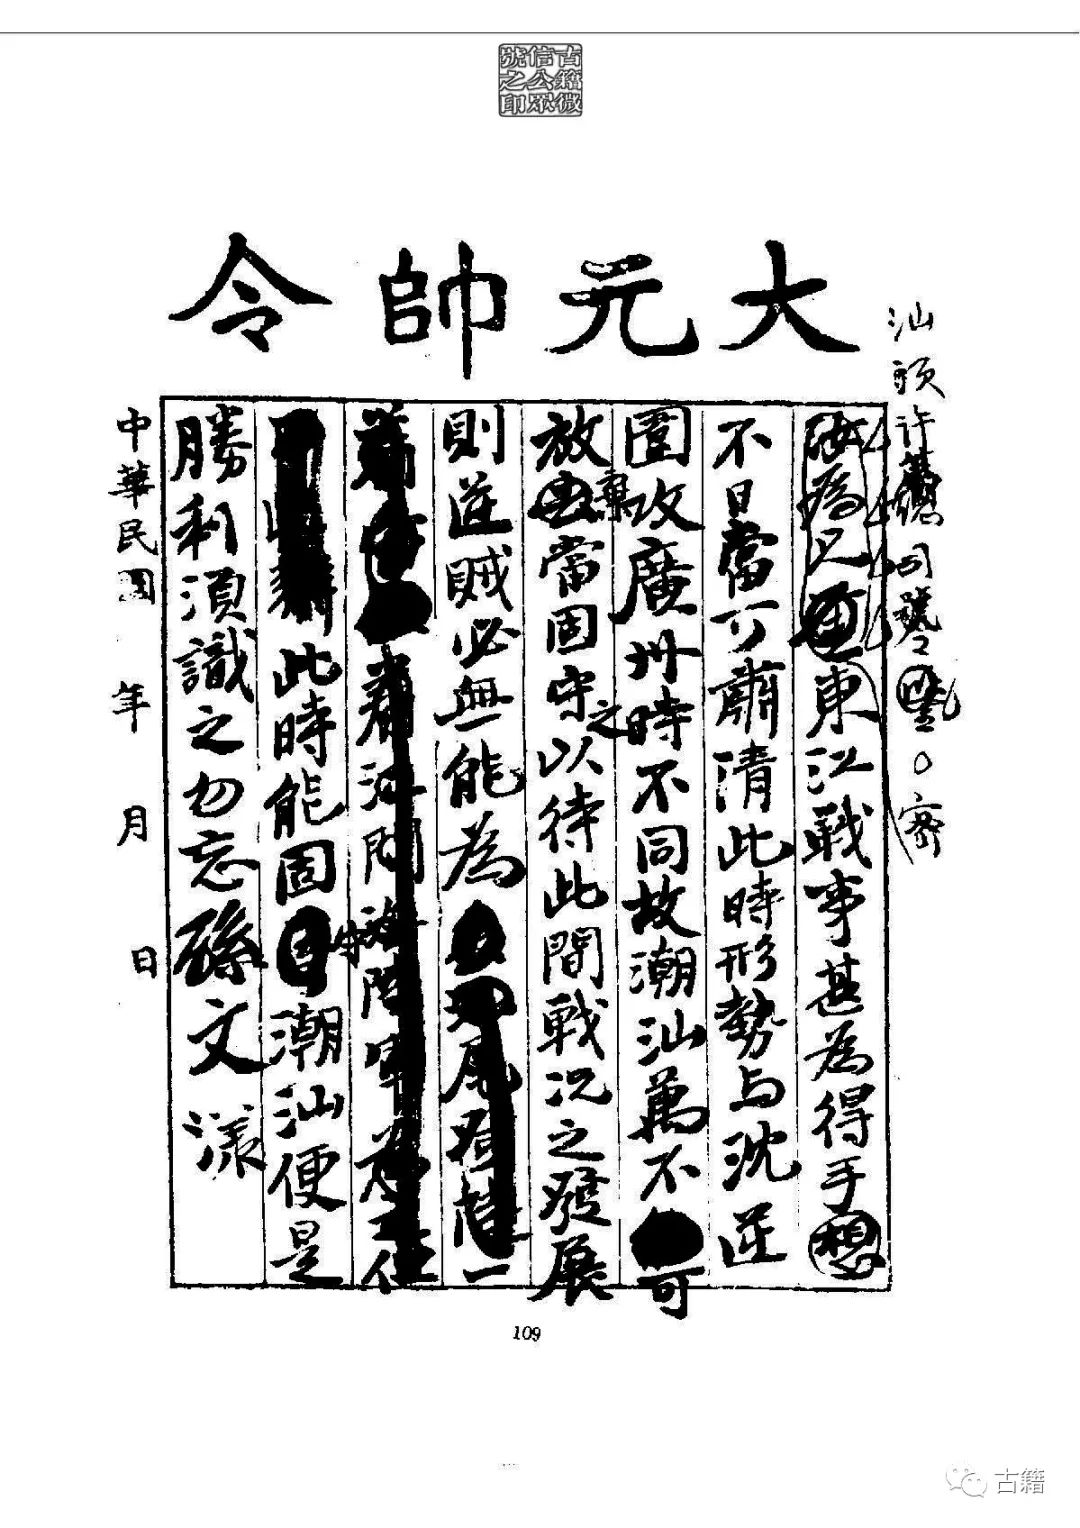 古籍微
信公眾
號之印
大元帥令
汕頭許總司令鑒〇密
東江戰事甚為得手想
不日當可肅清此時形勢與沈逆
圍攻廣州時不同故潮汕萬不可
放棄當固守之以待此間戰況之發展
則逆賊必無能為
此時能固守潮汕便是
勝利須識之勿忘孫文漾
中華民國 年 月 日
109
古籍